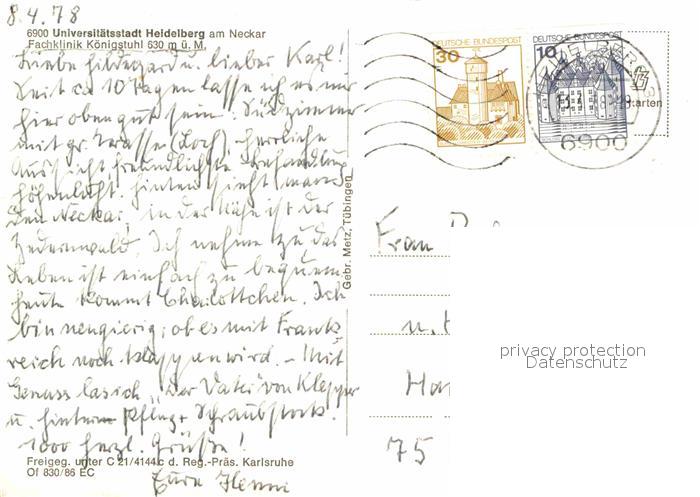 8.4.78
6900 Universitätsstadt Heidelberg am Neckar
Fachklinik Königstuhl 630 m ü. M.
Liebe Hildegard u. lieber Karl!
Seit ca 10 Tagen lasse ich es mir
hier oben gut sein. Südzimmer
mit gr. Terrasse (Loch), herrliche
Aussicht, freundlichste Behandlung
Höhenluft. Hinten sieht man
den Neckar, in der Nähe ist der
Ich nehme zu das
Leben ist einfach zu bequem
heute kommt Charlottchen. Ich
bin neugierig, ob es mit Frank-
reich noch klappen wird. – Mit
Genuss las ich "Der Vater" von Klepper
u. hinterm Pflug + Schraubstock.
1000 herzl. Grüße!
Eure Henni
Freigeg. unter C 21/4144 c d. Reg.-Präs. Karlsruhe
Of 830/86 EC
Gebr. Metz, Tübingen
DEUTSCHE BUNDESPOST
30
DEUTSCHE BUNDESPOST
10
HEIDELBERG
6900
Frau
u.
Ha
75
privacy protection
Datenschutz